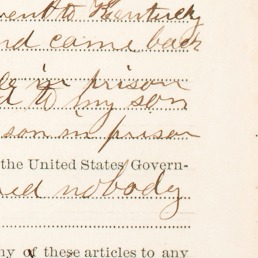 went to Kentucky
and came back
in prison
d to my son
son in prison
the United States Govern-
ed nobody
ny of these articles to any